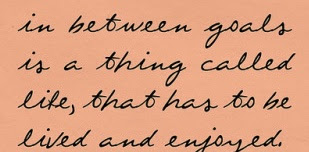 in between goals
is a thing called
life, that has to be
lived and enjoyed.